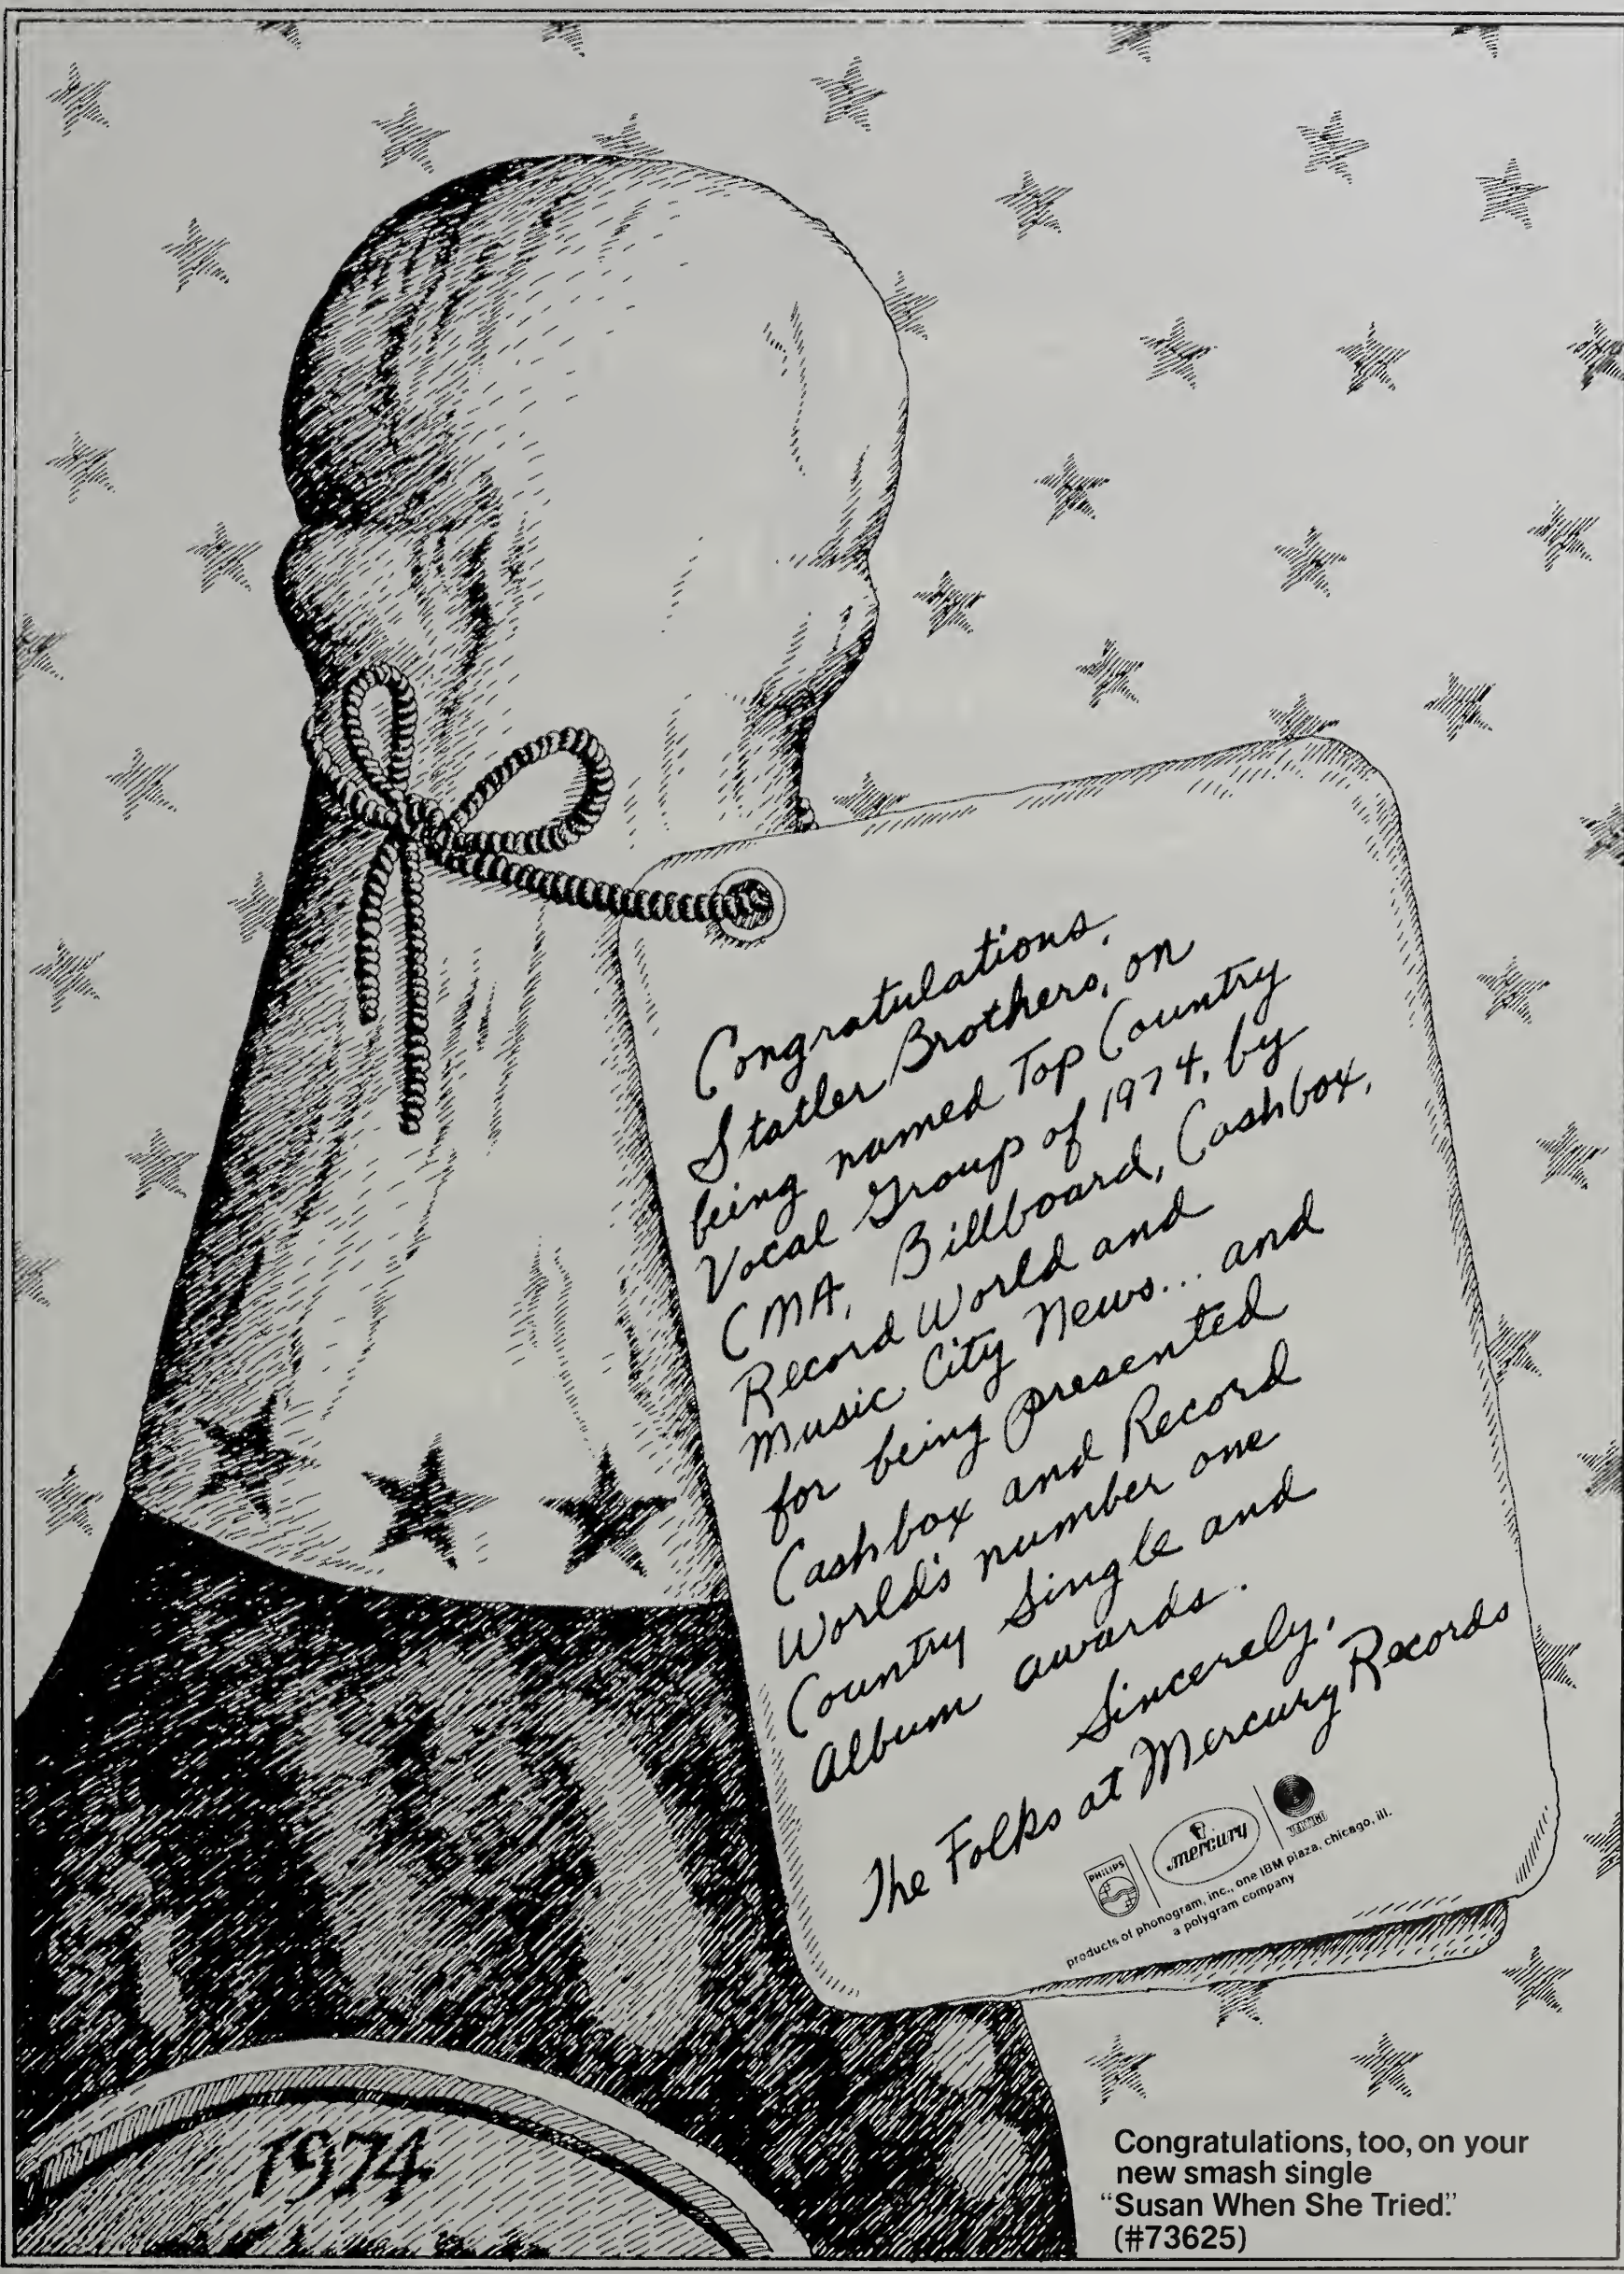 Congratulations,
Statler Brothers, on
being named Top Country
Vocal Group of 1974, by
CMA, Billboard, Cashbox,
Record World and
Music City News... and
for being presented
Cashbox and Record
World's number one
Country Single and
Album awards.
Sincerely,
The Folks at Mercury Records
PHILIPS
mercury
VERTIGO
products of phonogram, inc., one IBM plaza, chicago, ill.
a polygram company
1974
Congratulations, too, on your
new smash single
"Susan When She Tried."
(#73625)